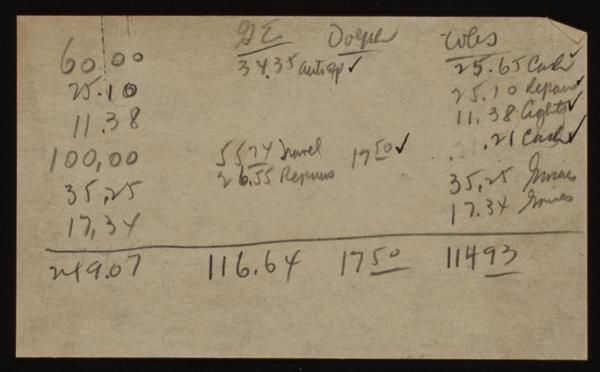 GE
60.00 34.35 auto exp ✓ 25.65 Cash ✓
25.10 25.10 Repairs ✓
11.38 11.38 Lights ✓
.21 Cash ✓
100,00 55 74 Travel 17 50 ✓
26.55 Repairs
35,25 35,25
17,34 17.34
249.07 116.64 17 50 114 93